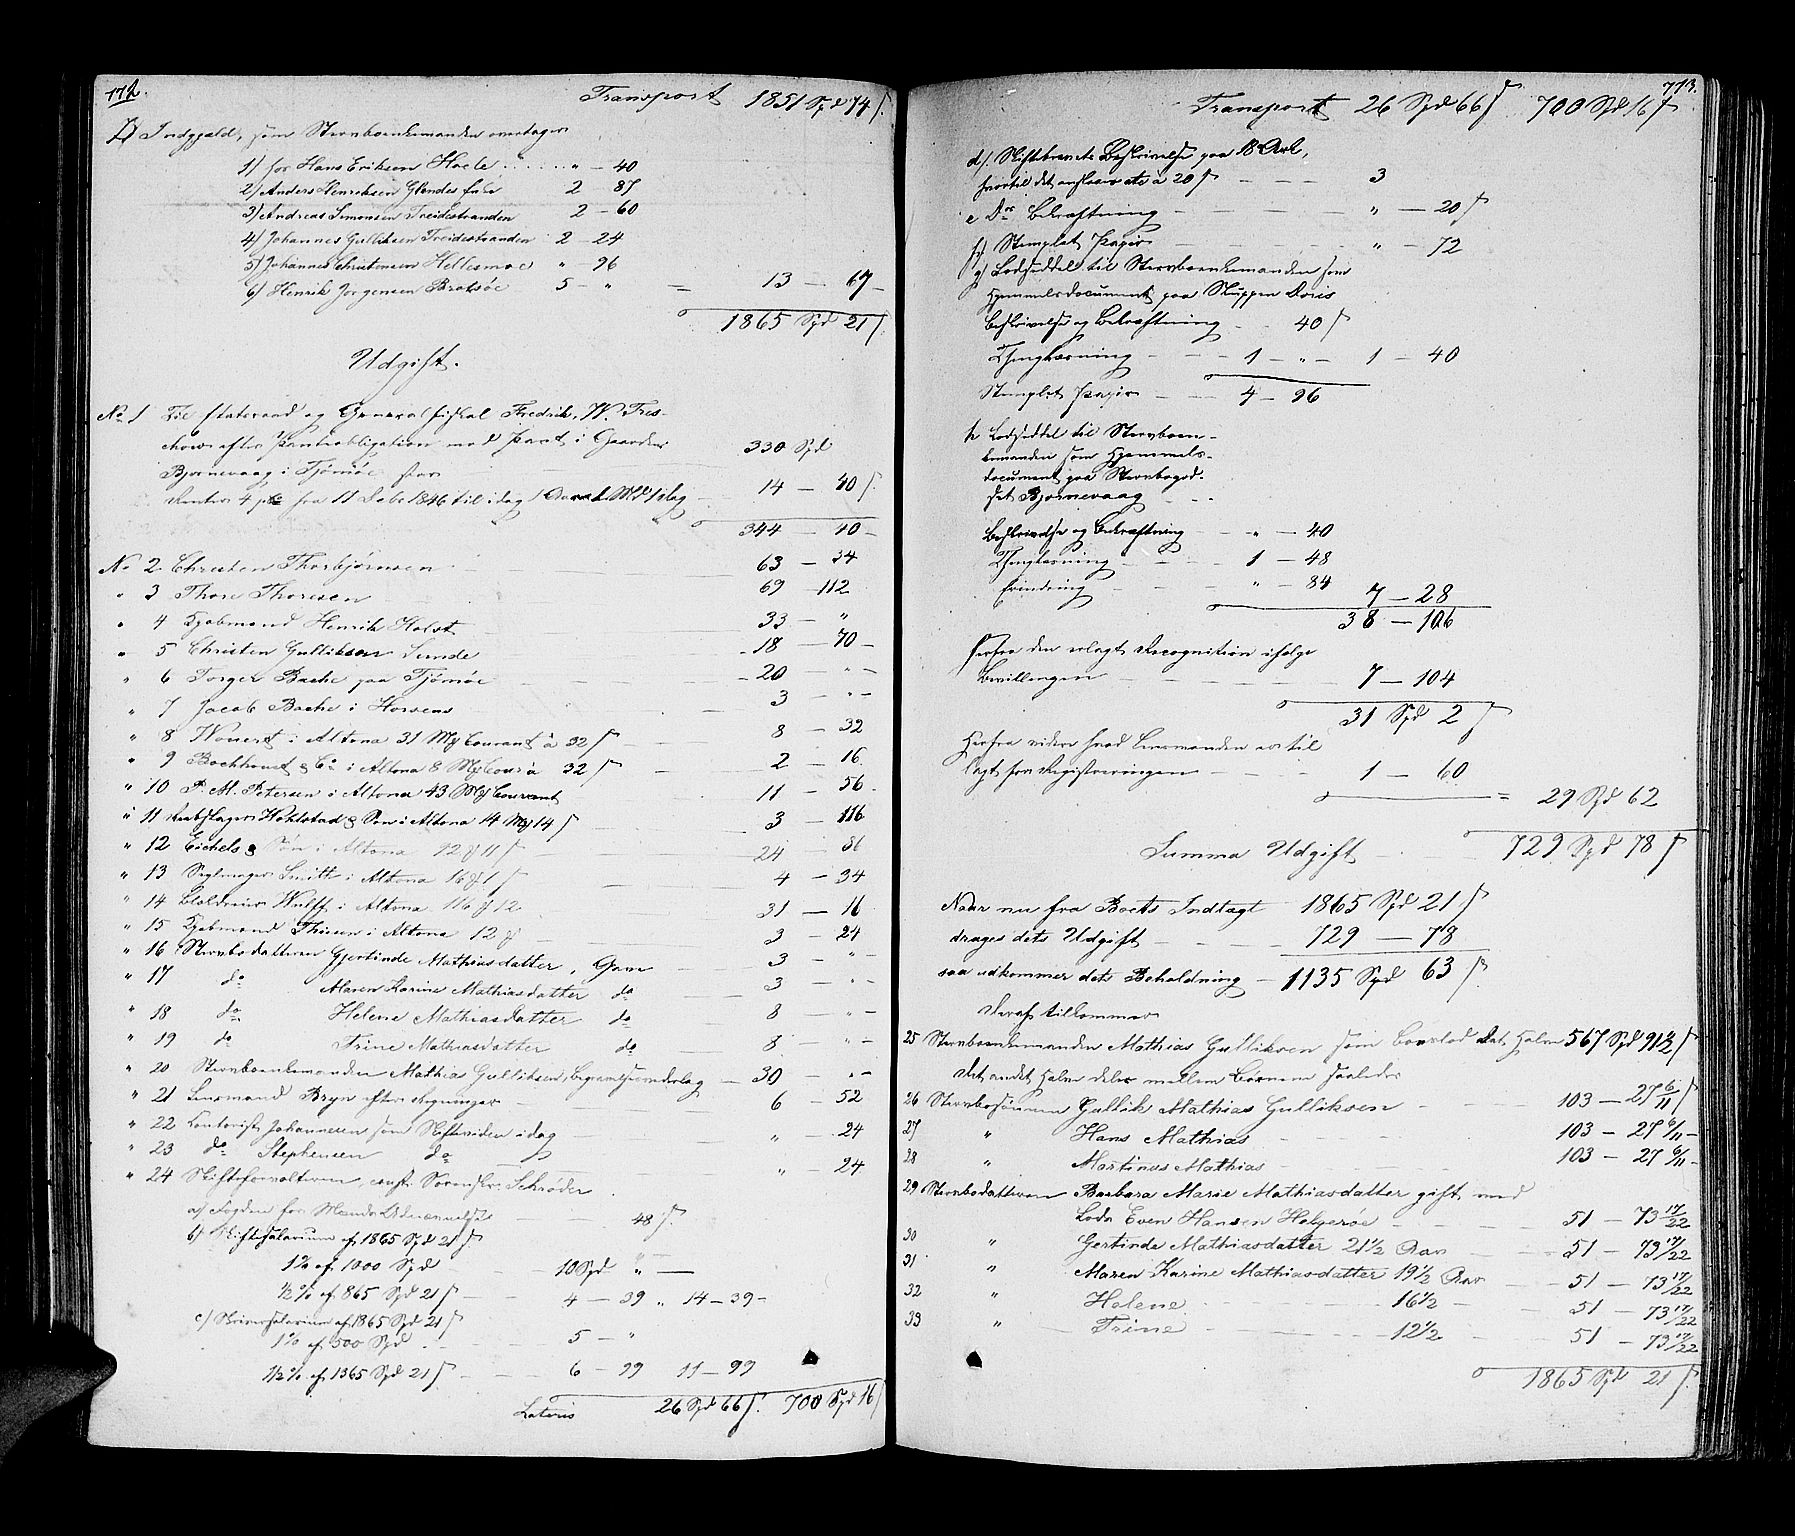 772.
Transport 1851 Spd 74 ß.
D Indgjæld, som Stervboenkemanden overtager
1) for Hans Eriksen Hoele " - 40
2) Anders Henriksen Glendes 2 - 87
3) Andreas Simonsen Treidestranden 2 - 60
4) Johannes Gulliksen Treidestranden 2 - 24
5) Johannes Christensen Hellesmoe " - 96
6) Henrik Jørgensen Bratsøe 5 - " = 13 - 67 -
1865 Spd 21 ß.
Udgift.
No 1 Til Statsraad og Generalfiskal Fredrik W. Tres-
chow efter Pantobligation med Pant i Gaarden
Bjørnevaag i Tjømøe stor 330 Spd
Renter 4 pct fra 11 Debr 1846 til idag 14 - 40 ß.
344 - 40 -
No 2. Christen Thorbjørnsen 63 - 34
" 3 Thore Thoresen 69 - 112
" 4 Kjøbmand Henrik Holst 33 - "
" 5 Christen Gulliksen Sunde 18 - 70 -
" 6 Torger Bache paa Tjømøe 20 - " -
" 7 Jacob Bache i Horsens 3 - " -
" 8 Wouert i Altona 31 Mk Courant a 32 ß 8 - 32
" 9 Bockhout & Co i Altona 8 Mk Cour a 32 ß 2 - 16
" 10 P. M. Petersen i Altona 43 Mk Courant 11 - 56
" 11 Reebslager Wohlstad & Søn i Altona 14 Mk 14 ß 3 - 116
" 12 Eichels & Søn i Altona 12 11 ß 24 - 86
" 13 Seglmager Smitt i Altona 16 1 ß 4 - 34
" 14 Wulff i Altona 116 12 31 - 16
" 15 Kjøbmand Thiesen i Altona 12 3 - 24
" 16 Stervbodatteren Gjertinde Mathiasdatter, Gave 3 - " -
" 17 do Maren Karine Mathiasdatter do 3 - " -
" 18 do Helene Mathiasdatter do 8 - " -
" 19 do Trine Mathiasdatter do 8 - " -
" 20 Stervboenkemanden Mathias Gulliksen, begravelsesvederlag 30 - " -
" 21 Lensmand Bryn efter Regninger 6 - 52
" 22 Contorist Johannesen som Skiftevidne idag " - 24
" 23 do Stephensen do " - 24
" 24 Skifteforvalteren, const. Sorenskr. Schrøder
a) Fogden for Mænds Udnævnelse 48 ß.
b) Skiftesalarium af 1865 Spd 21 ß
1% af 1000 Spd 10 Spd " -
½% af 865 Spd 21 ß 4 - 39 " 14 - 39 -
c) Skriversalarium af 1865 Spd 21 ß
1% af 500 Spd 5 - "
½% af 1365 Spd 21 ß 6 - 99 11 - 99
Lateris 26 Spd 66 ß. 700 Spd 16 ß
773.
Transport 26 Spd 66 ß 700 Spd 16 ß
d). Skiftebrevets Beskrivelse paa 18 Ark,
hvortil det ansl a 20 ß 3
e Ds Bekræftning " - 20 ß
f) Stemplet Papir " - 72
g) Lodseddel til Stervboenkemanden som
Hjemmelsdocument paa Skuppen Doris
Beskrivelse og Bekræftning 40 ß
Thinglæsning 1 - " - 1 - 40
Stemplet Papir 4 - 96
h Lodseddel til Stervboen-
kemanden som Hjemmels-
document paa Stervbogod-
set Bjørnevaag
Beskrivelse og Bekræftning " - 40
Thinglæsning 1 - 48
Erindring " - 84 7 - 28
38 - 106
Herfra den erlagte Recognition ifølge
Bevillingen 7 - 104
31 Spd 2 ß
Herfra videre hvad Lensmanden er til
lagt for Registreringen 1 - 60
= 29 Spd 62
Summa Udgift 729 Spd 78 ß
Naar nu fra Boets Indtægt 1865 Spd 21 ß
drages dets Udgift 729 - 78
saa udkommer dets Beholdning 1135 Spd 63 ß
Deraf tilkommer
25 Stervboenkemanden Mathias Gulliksen som Boeslod det halve 567 Spd 91½ ß
Det andet halve deles mellem Børnene saaledes
26 Stervbosønnen Gullik Mathias Gulliksen 103 - 27 6/11 ß
27 " Hans Mathias 103 - 27 6/11 -
28 " Martinus Mathias 103 - 27 6/11 -
29 Stervbodatteren Barbara Marie Mathiasdatter gift med
Lods Even Hansen Helgerøe 51 - 73 17/22
30 " Gertinde Mathiasdatter 21½ Aar 51 - 73 17/22
31 " Maren Karine Mathiasdatter 19½ Aar 51 - 73 17/22
32 " Helene 16½ 51 - 73 17/22
33 " Trine 12½ 51 - 73 17/22
1865 Spd 21 ß.